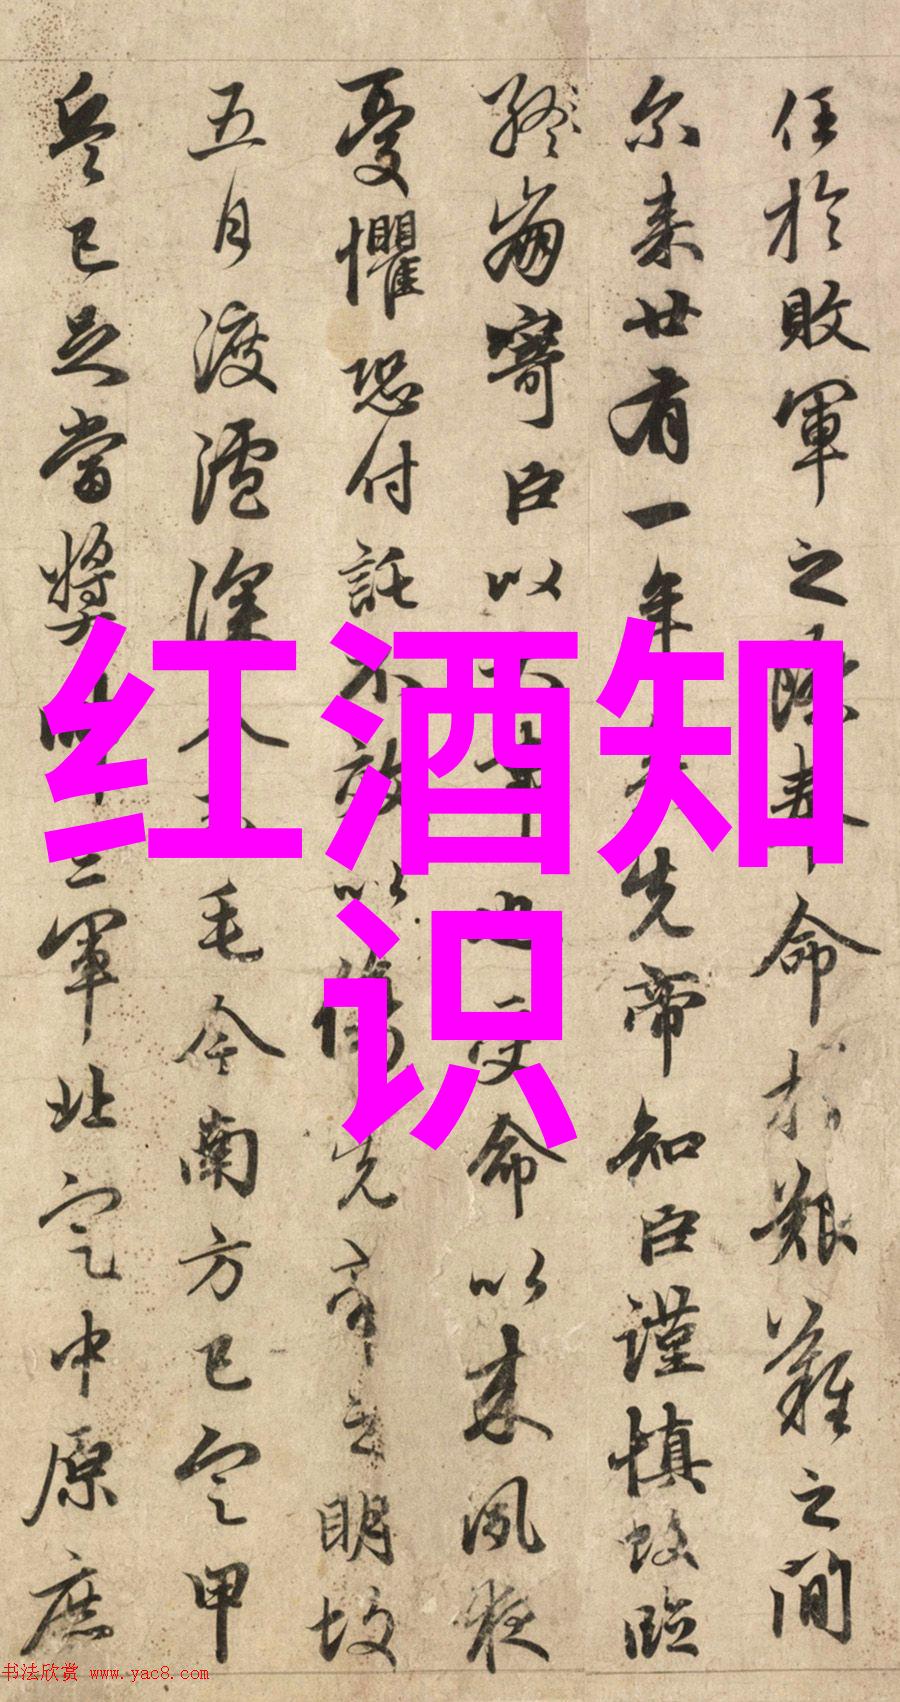 任於敗軍之際奉命於艱難之間
尔来廿有一年矣先帝知臣謹慎故臨
終崩寄臣以大事也受命以来夙夜
憂懼恐付託不效以傷先帝之明故
五月渡瀘深入不毛今南方已定甲
兵已足當獎帥三軍北定中原庶
红酒知
识
书法欣赏 www.yac8.com